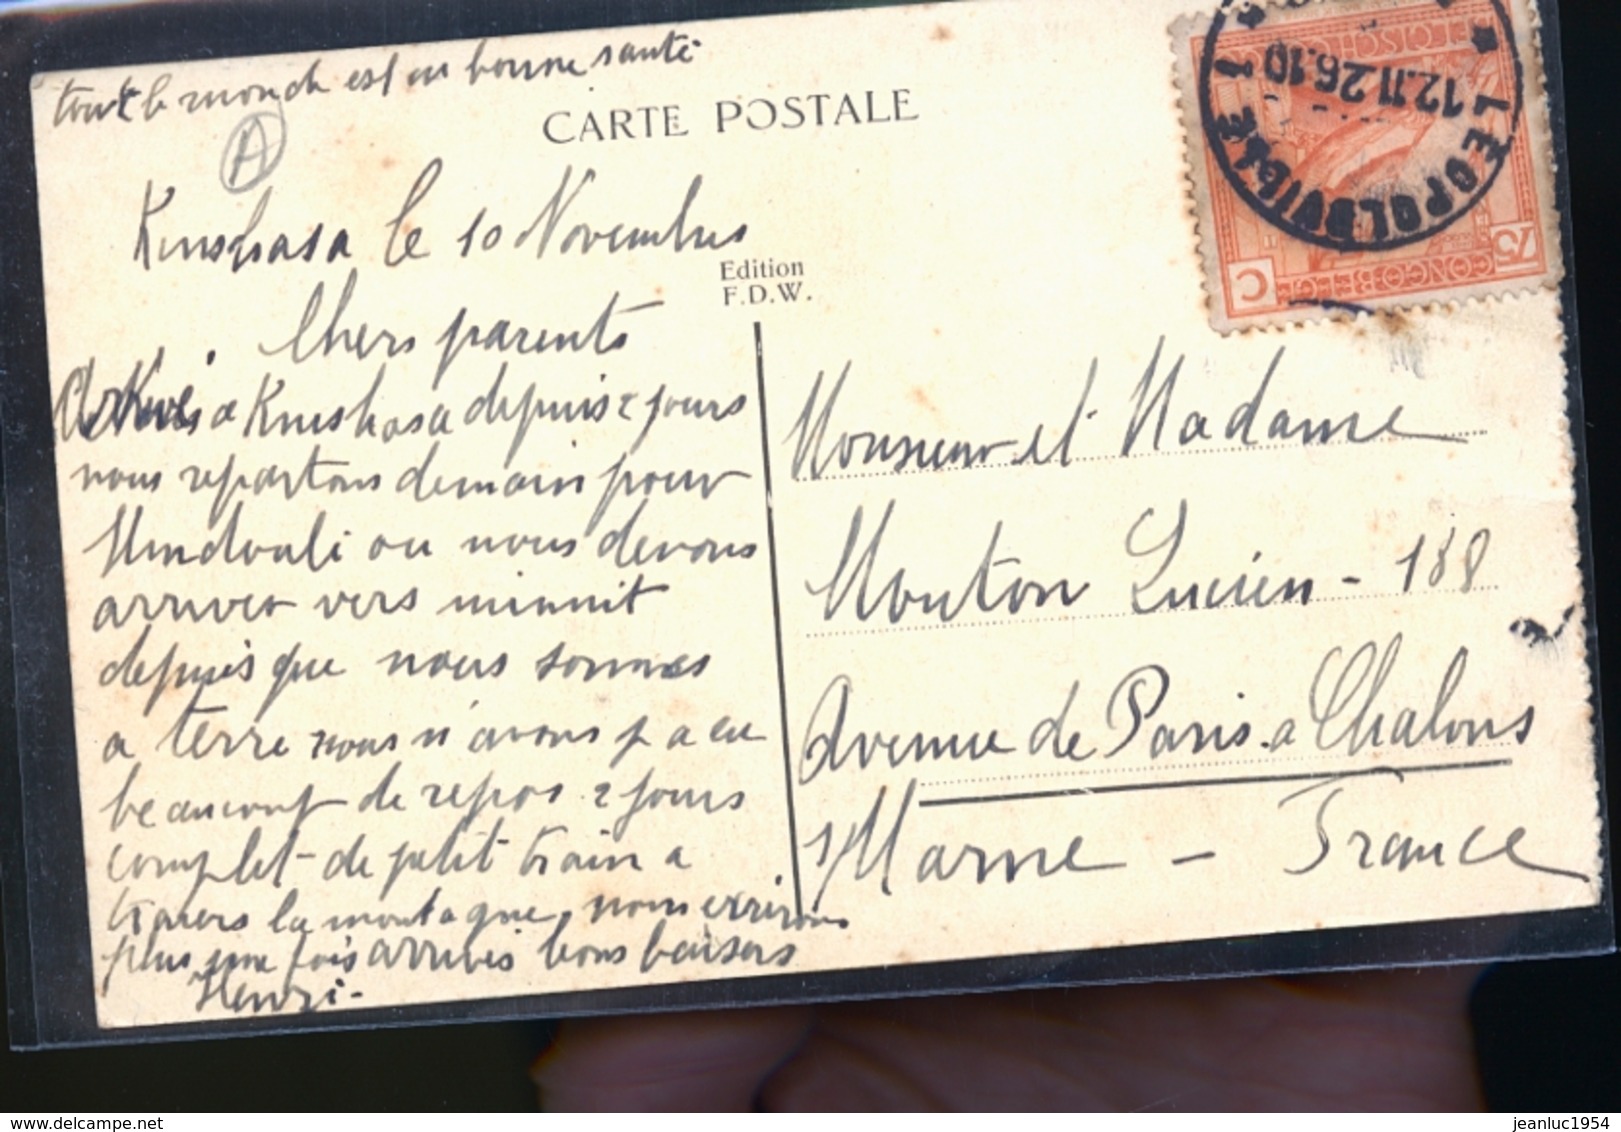 tout le monde est en bonne santé
A
CARTE POSTALE
Kinshasa le 10 Novembre
Edition
F.D.W.
Chers parents
Arrivés a Kinshasa depuis 2 jours
nous repartons demain pour
Mindouli ou nous devons
arriver vers minuit
depuis que nous sommes
a terre nous n'avons pas eu
beaucoup de repos 2 jours
complet de petit train a
travers la montagne, nous écrirons
plus une fois arrivés bons baisers
Henri-
Monsieur et Madame
Mouton Lucien - 188
Avenue de Paris a Chalons
s/Marne - France
LEOPOLDVILLE 1
12.11.26.10
CONGO BELGE
75 C
delcampe.net
jeanluc1954